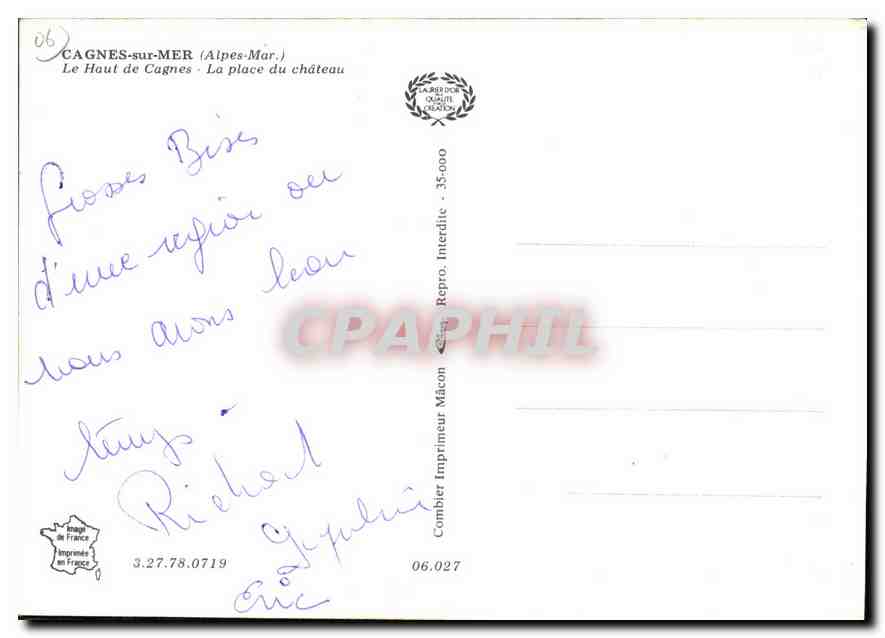 06
CAGNES-sur-MER (Alpes-Mar.)
Le Haut de Cagnes - La place du château
LAURIER D'OR
DE LA
QUALITÉ
CRÉATION
Grosses Bises
d'une région ou
nous avons beau
temps.
Richard
Eric
Combier Imprimeur Mâcon
Repro. Interdite - 35-000
CPAPHIL
Image
de France
Imprimée
en France
3.27.78.0719
06.027